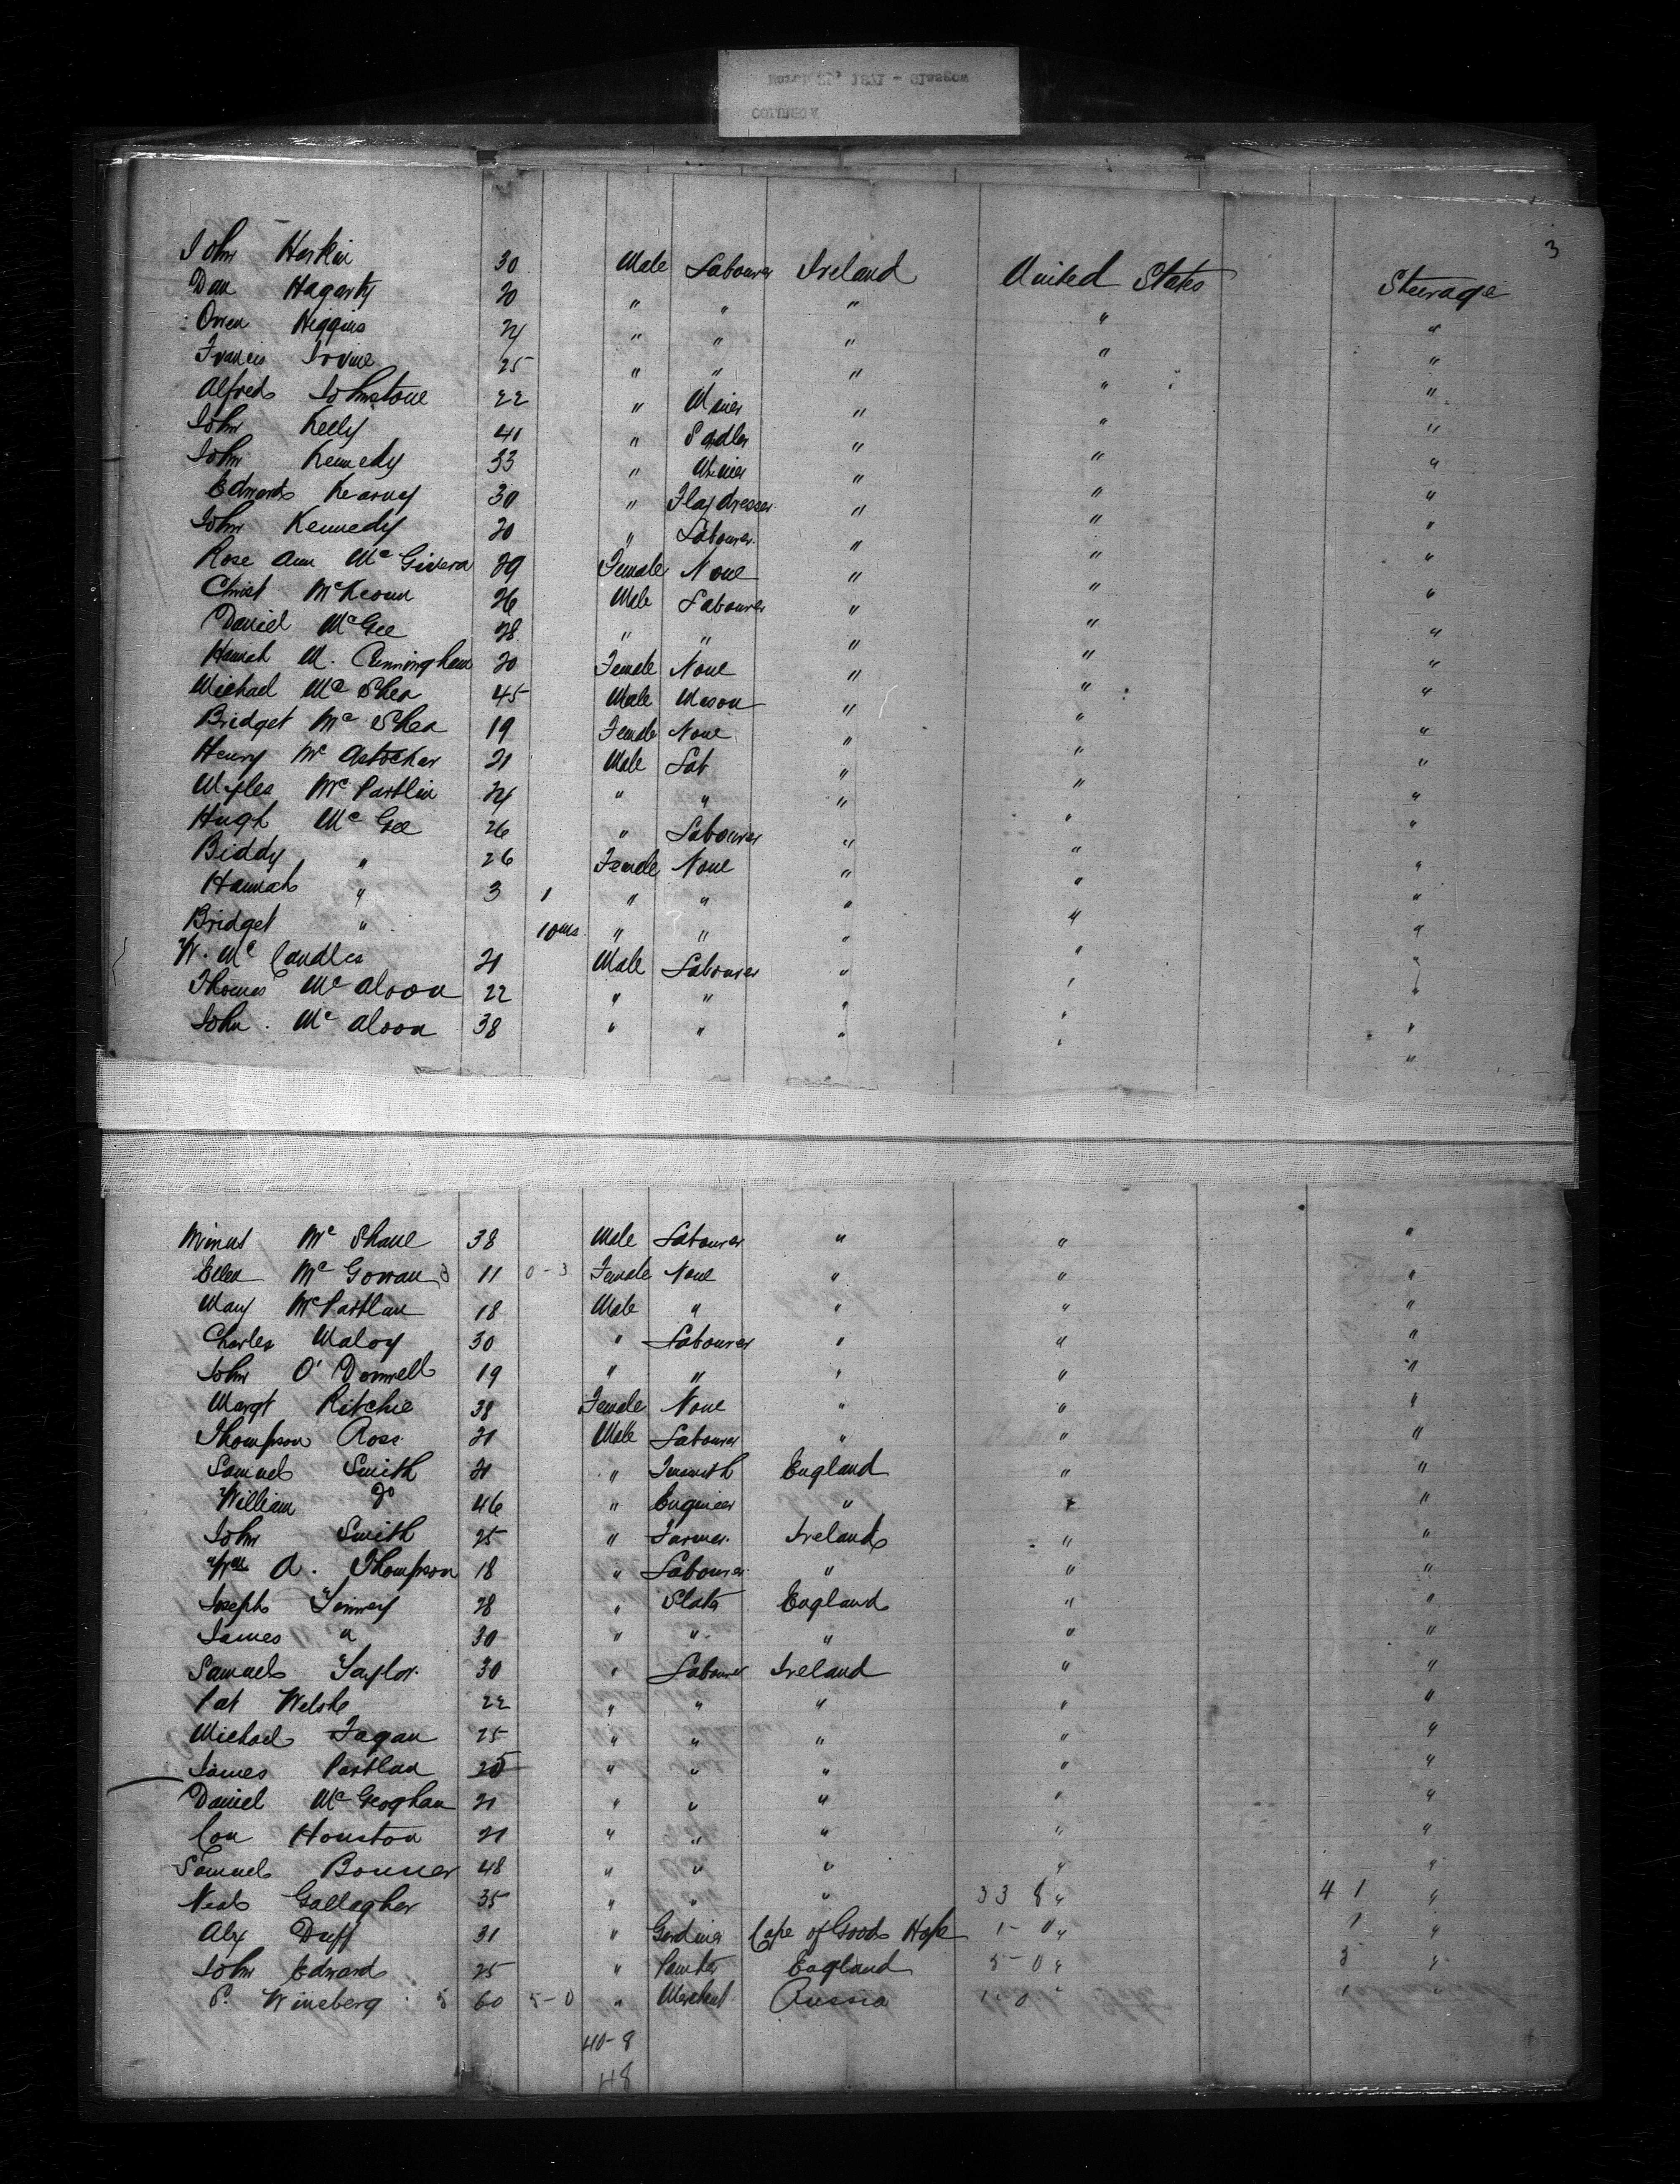 March 27, 1871 - Glasgow
COLUMBIA
3
John Harkin 30 Male Labourer Ireland United States Steerage
Dan Hagarty 20 " " " " "
Owen Higgins 24 " " " " "
Francis Irvine 25 " " " " "
Alfred Johnstone 22 " Miner " " "
John Kelly 41 " Sadler " " "
John Kennedy 33 " Miner " " "
Edward Kearney 30 " Flaxdresser " " "
John Kennedy 20 " Labourer " " "
Rose Ann McGivern 29 Female None " " "
Christ McKeown 26 Male Labourer " " "
Daniel McGee 28 " " " " "
Hannah M. Cunningham 20 Female None " " "
Michael McShea 45 Male Mason " " "
Bridget McShea 19 Female None " " "
Henry Mc 21 Male Lab " " "
Myles McPartlin 24 " " " " "
Hugh McGee 26 " Labourer " " "
Biddy " 26 Female None " " "
Hannah " 3 1 " " " " "
Bridget " 10ms " " " " "
W. McCandles 21 Male Labourer " " "
Thomas McAloon 22 " " " " "
John McAloon 38 " " " " "
McShane 38 Male Labourer " " "
Ellen McGowan 3 11 0-3 Female None " " "
Mary McPartlan 18 Male " " " "
Charles Maloy 30 " Labourer " " "
John O'Donnell 19 " " " " "
Margt Ritchie 38 Female None " " "
Thompson Ross 21 Male Labourer " " "
Samuel Smith 21 " Tinsmith England " "
William Do 46 " Engineer " " "
John Smith 25 " Farmer Ireland " "
Wm A. Thompson 18 " Labourer " " "
Joseph 28 " Slater England " "
James " 30 " " " " "
Samuel Taylor 30 " Labourer Ireland " "
Pat Welsh 22 " " " " "
Michael Fagan 25 " " " " "
James Partlan 25 " " " " "
Daniel McGeoghan 21 " " " " "
Con Houston 21 " " " " "
Samuel Bonner 48 " " " " "
Neal Gallagher 35 " " " 33 8 " 41 "
Alex Duff 31 " Gardiner Cape of Good Hope 1-0 " 1 "
John Edward 25 " Painter England 5-0 " 5 "
P. Wineberg 5 60 5-0 " Merchant Russia 1-0 " 1 "
40-8
48